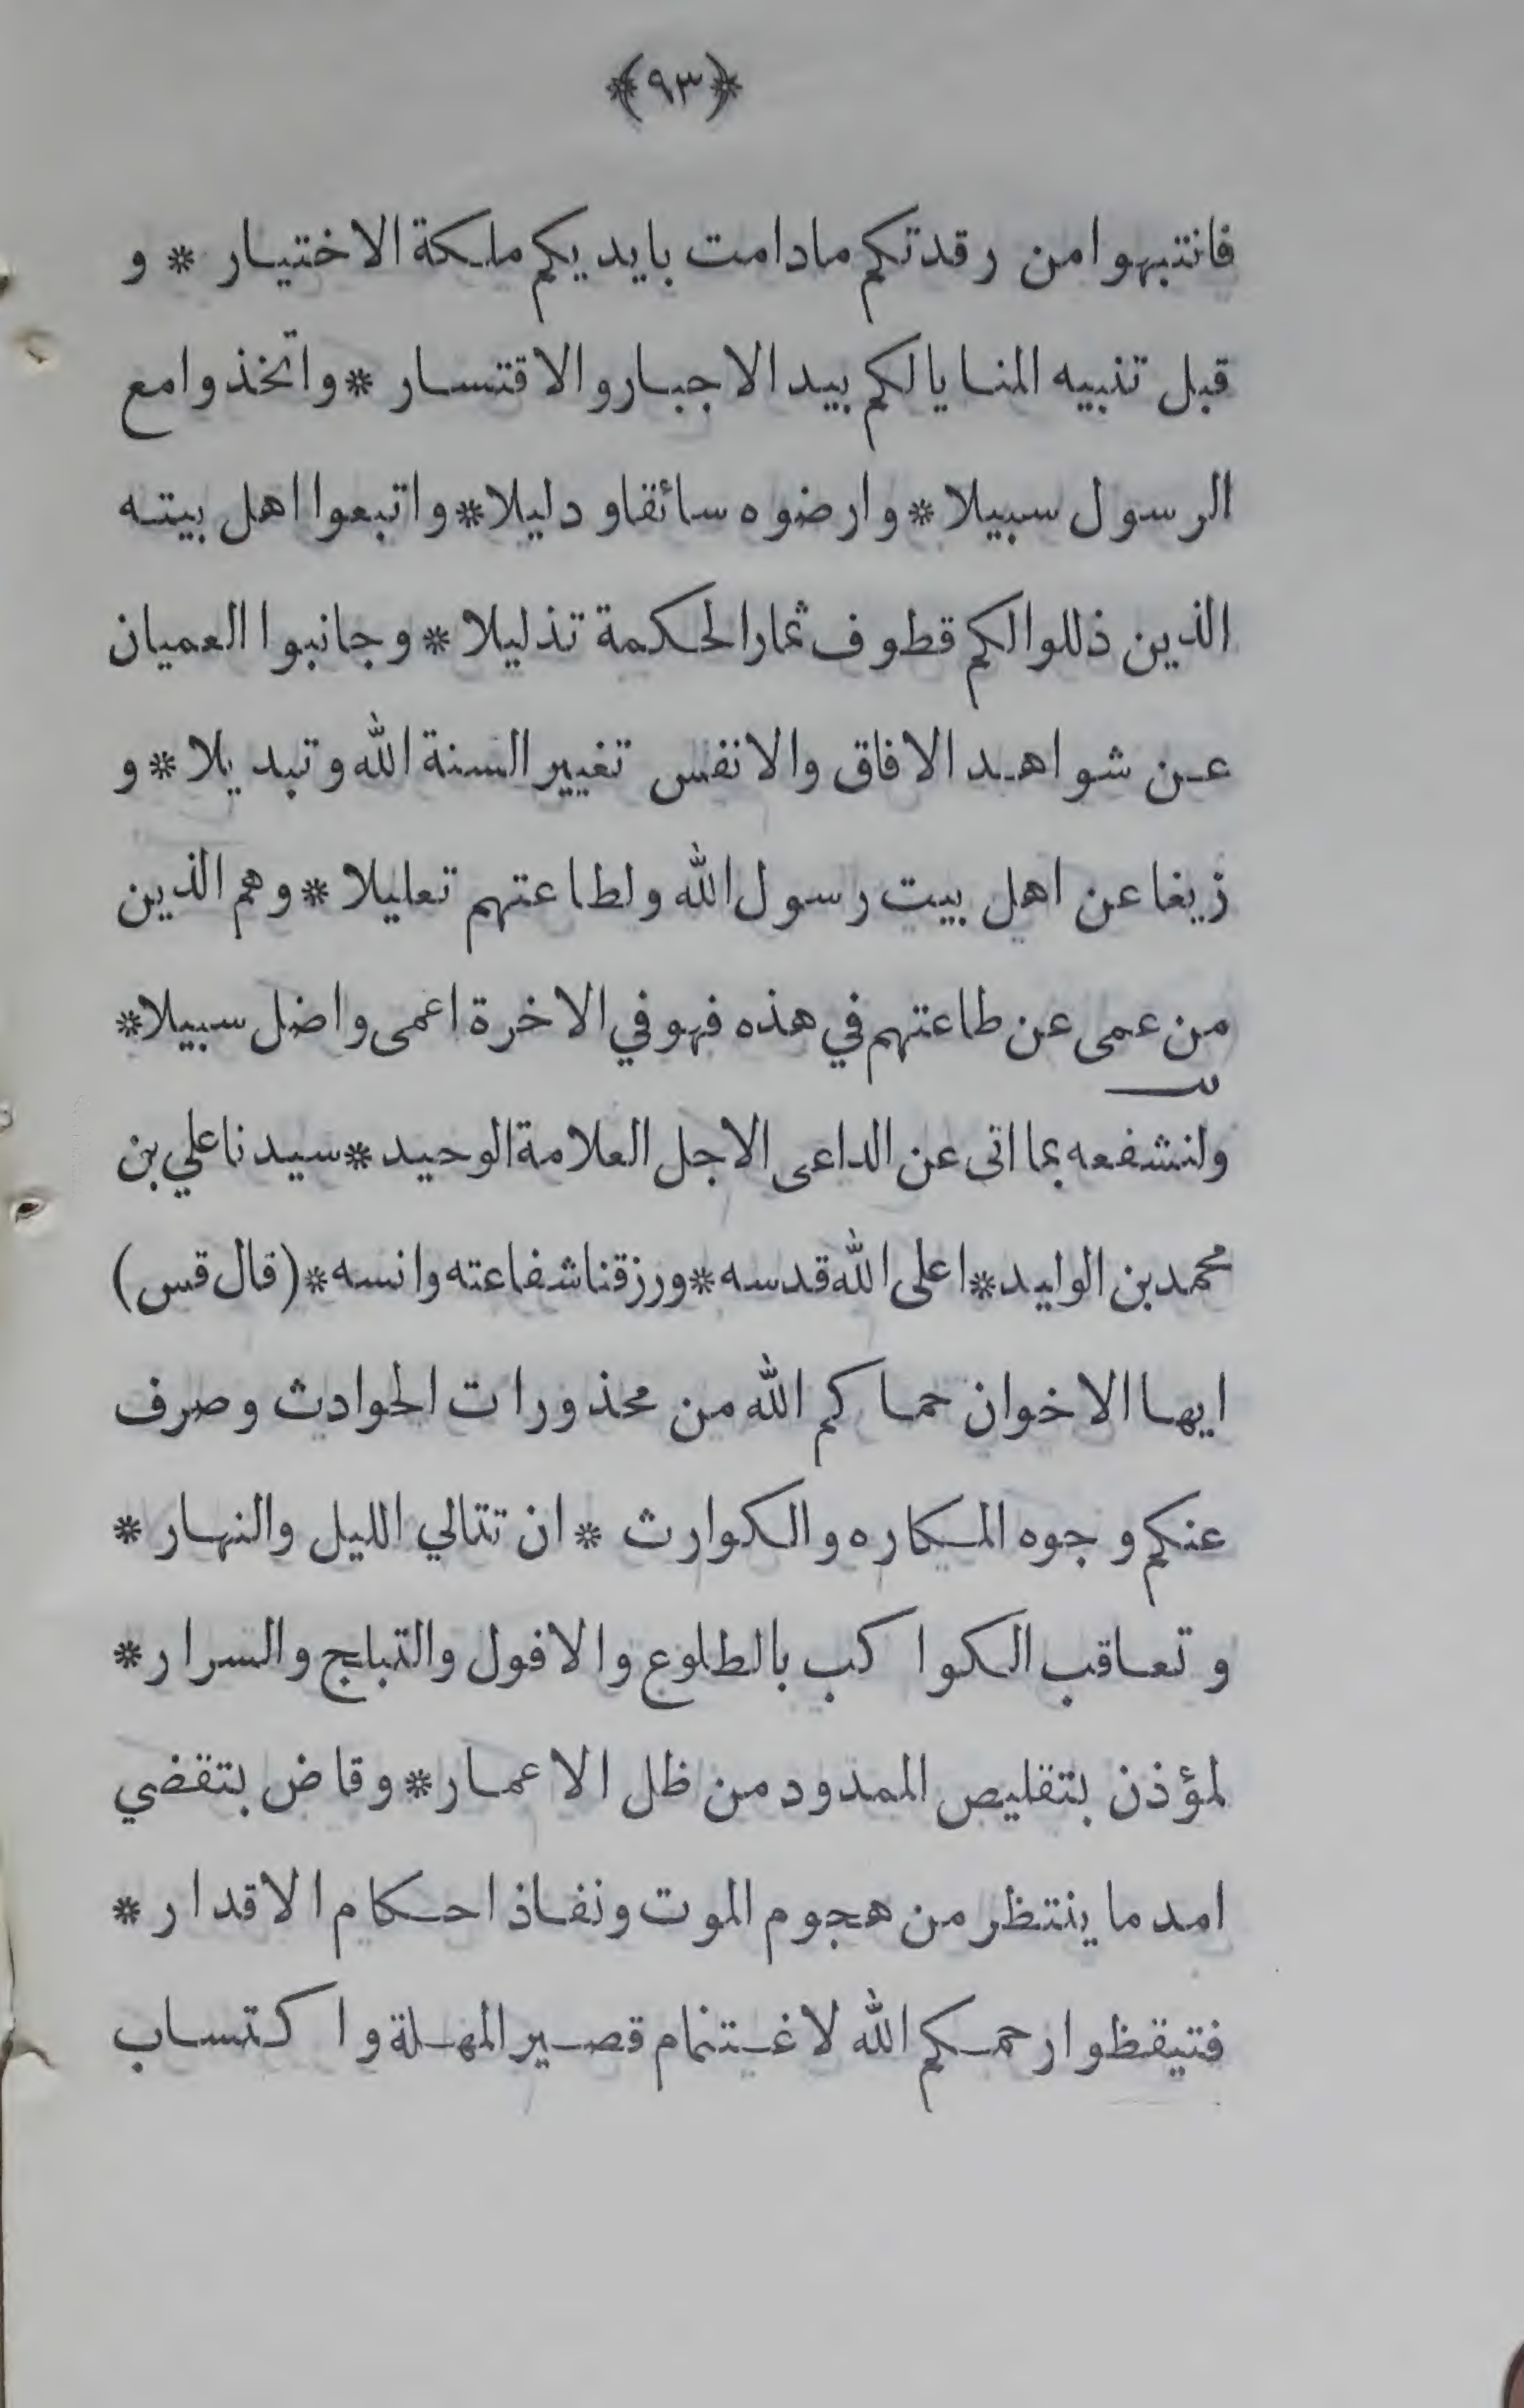 ﴿٩٣﴾
فانتبهوا من رقدتكم مادامت بايديكم ملكة الاختيار * و
قبل تنبيه المنايا لكم بيد الاجبار والاقتسار * واتخذوا مع
الرسول سبيلا * وارضوه سائقا و دليلا * واتبعوا اهل بيته
الذين ذللوا لكم قطوف ثمار الحكمة تذليلا * وجانبوا العميان
عن شواهد الافاق والانفس تغيير السنة الله وتبديلا * و
زيغا عن اهل بيت رسول الله ولطاعتهم تعليلا * وهم الذين
من عمى عن طاعتهم في هذه فهو في الاخرة اعمى واضل سبيلا *
ولنشفعه بما اتى عن الداعى الاجل العلامة الوحيد * سيدنا علي بن
محمد بن الوليد * اعلى الله قدسه * ورزقنا شفاعته وانسه * (قال قس)
ايها الاخوان حماكم الله من محذورات الحوادث وصرف
عنكم وجوه المكاره والكوارث * ان تتالي الليل والنهار *
وتعاقب الكواكب بالطلوع والافول والتبلج والسرار *
لمؤذن بتقليص الممدود من ظل الاعمار * وقاض بتقضي
امد ما ينتظر من هجوم الموت ونفاذ احكام الاقدار *
فتيقظوا رحمكم الله لاغتنام قصير المهلة واكتساب